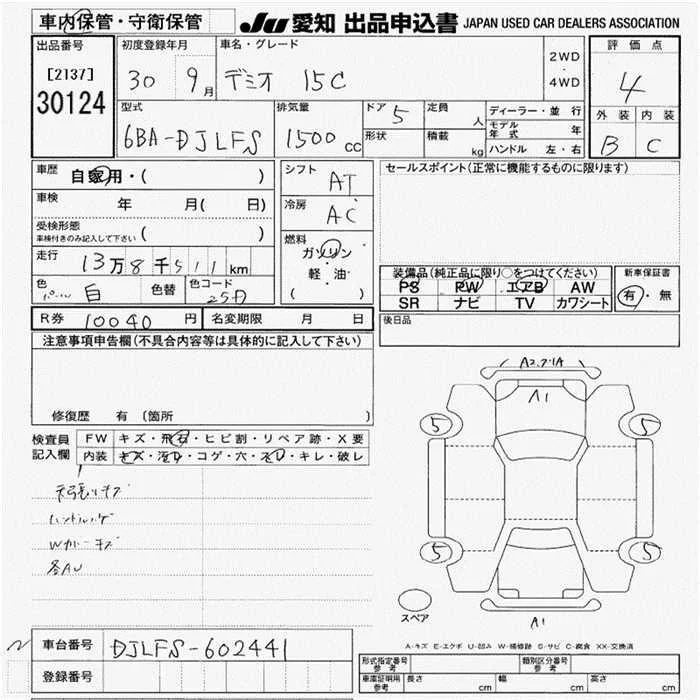 車内保管・守衛保管
JU 愛知 出品申込書 JAPAN USED CAR DEALERS ASSOCIATION
出品番号
[2137]
30124
初度登録年月
30 9月
車名・グレード
デミオ 15C
2WD
・
4WD
評価点
4
外装 内装
B C
型式
6BA-DJLFS
排気量
1500cc
ドア 5
形状
定員 人
積載 kg
ディーラー・並行
モデル年式 年
ハンドル 左・右
車歴 自家用・( )
車検 年 月( 日)
受検形態
車検付きのみ記入して下さい ( )
走行 13万8千511km
色 白 色替 色コード 25D
シフト AT
冷房 AC
燃料
ガソリン・
軽・油
( )
セールスポイント(正常に機能するものに限ります)
装備品(純正品に限り○をつけてください)
PS PW エアB AW
SR ナビ TV カワシート
新車保証書
有・無
R券 10040円 名変期限 月 日
後日品
注意事項申告欄(不具合内容等は具体的に記入して下さい)
修復歴 有 (箇所 )
検査員
記入欄
FW キズ・飛石・ヒビ割・リペア跡・X要
内装 キズ・汚れ・コゲ・穴・スレ・キレ・破レ
天張リキズ
ハンドルハゲ
Wカバーキズ
各AU
A2.アイA
A1
5 5
5 5
スペア
A1
A-キズ E-エクボ U-凹み W-補修跡 S-サビ C-腐食 XX-交換済
車台番号 DJLFS-602441
登録番号
形式指定番号
参考
類別区分番号
参考
車庫証明用
参考
長さ cm 幅 cm 高さ cm